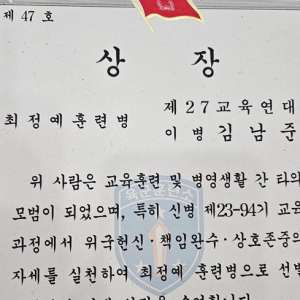 제 47 호
상 장
제27교육연대
최정예훈련병
이 병 김 남 준
위 사람은 교육훈련 및 병영생활 간 타의
모범이 되었으며, 특히 신병 제23-94기 교육
과정에서 위국헌신·책임완수·상호존중의
자세를 실천하여 최정예 훈련병으로 선발